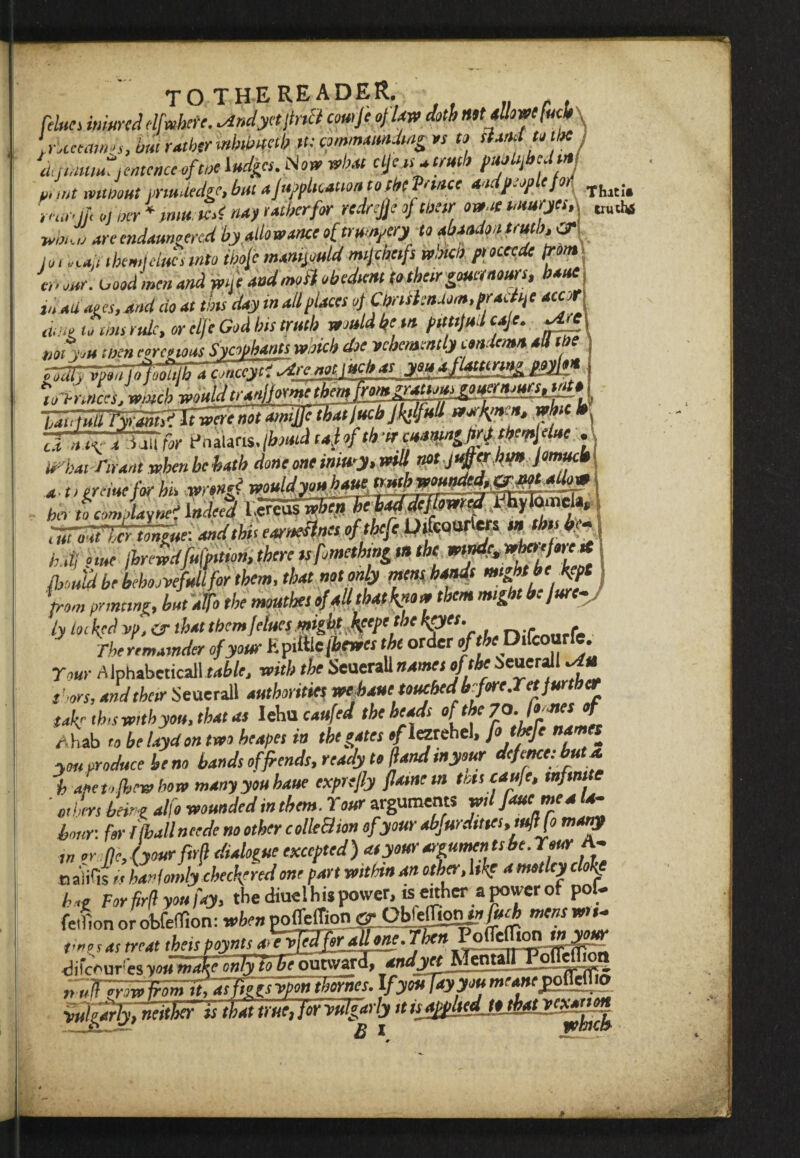 TO THE READER.
selues iniured elswhere. And yet strict course of law doth not allowe such
proceedings, but rather inhibiteth it: commaunding vs to stand to the
definitiue sentence of the Iudges. Now what else is a truth published in
print without priuiledge, but a supplication to the Prince and people for
redresse of her * iniuries? nay rather for redresse of their owne iniuryes,
That is
truths
which are endaungered by allowance of trumpery to abandon truth, &
to cast themselues into those manifould mischeifs which proceede from
errour. Good men and wise and most obedient to their gouernours, haue
in all ages, and do at this day in all places of Christendom, practise accor
ding to this rule, or else God his truth would be in pittifull case. Are
not you then egregious Sycophants which doe vehemently condemn all the
godly vpon so foolish a conceyt? Are not such as you a flattering poyson
to Princes, which would transforme them from gratious gouernours, into
hatefull Tyrants? It were not amisse that such skilfull workmen, whic h
can make a Bull for Phalaris, should tast of their cunning first themselue .
What Tirant when he hath done one iniury, will not suffer him so much
as to greiue for his wrong? would you haue truth wounded, & not allow
her to complayne? Indeed Tereus when he had deflowred Phylomela,
cut out her tongue: and this earnestnes of these Discourlers in this be-
half giue shrewd suspition, there is something in the winde, wherefore it
should be behoovefull for them, that not only mens hands might be kept
from printing, but also the mouthes of all that know them might be sure-
ly locked vp, & that themselues might keepe the keyes.
The remainder of your Epistle shewes the order of the Discourse.
Your Alphabeticall table, with the Seuerall names of the Seuerall Au
thors, and their Seuerall authorities we haue touched before. Yet further
take this with you, that as Iehu caused the heads of the 70. sonnes of
Ahab to be layd on two heapes in the gates of Iezrehel, so these names
you produce be no bands of frends, ready to stand in your defence: but a
heape to shew how many you haue expresly slaine in this cause, infinite
others being also wounded in them. Your arguments wil saue me a la-
bour: for I shall neede no other collection of your absurdities, iust so many
in grosse, (your first dialogue except­ed) as your arguments be. Your A-
nalisis is hansomly checkered one part within an other, like a motley cloke
bag For first you say, the diuel his power, is either a power of pos-
session or obsession: when possession & Obsession in such mens wri-
tings as treat theis poynts are vsed for all one. Then Possession in your
discourses you make only to be outward, and yet Mentall Possession
must grow from it, as figgs vpon thornes. If you say you meane possessio
vulgarly, neither is that true, for vulgarly it is applied to that vexation
B 1
which